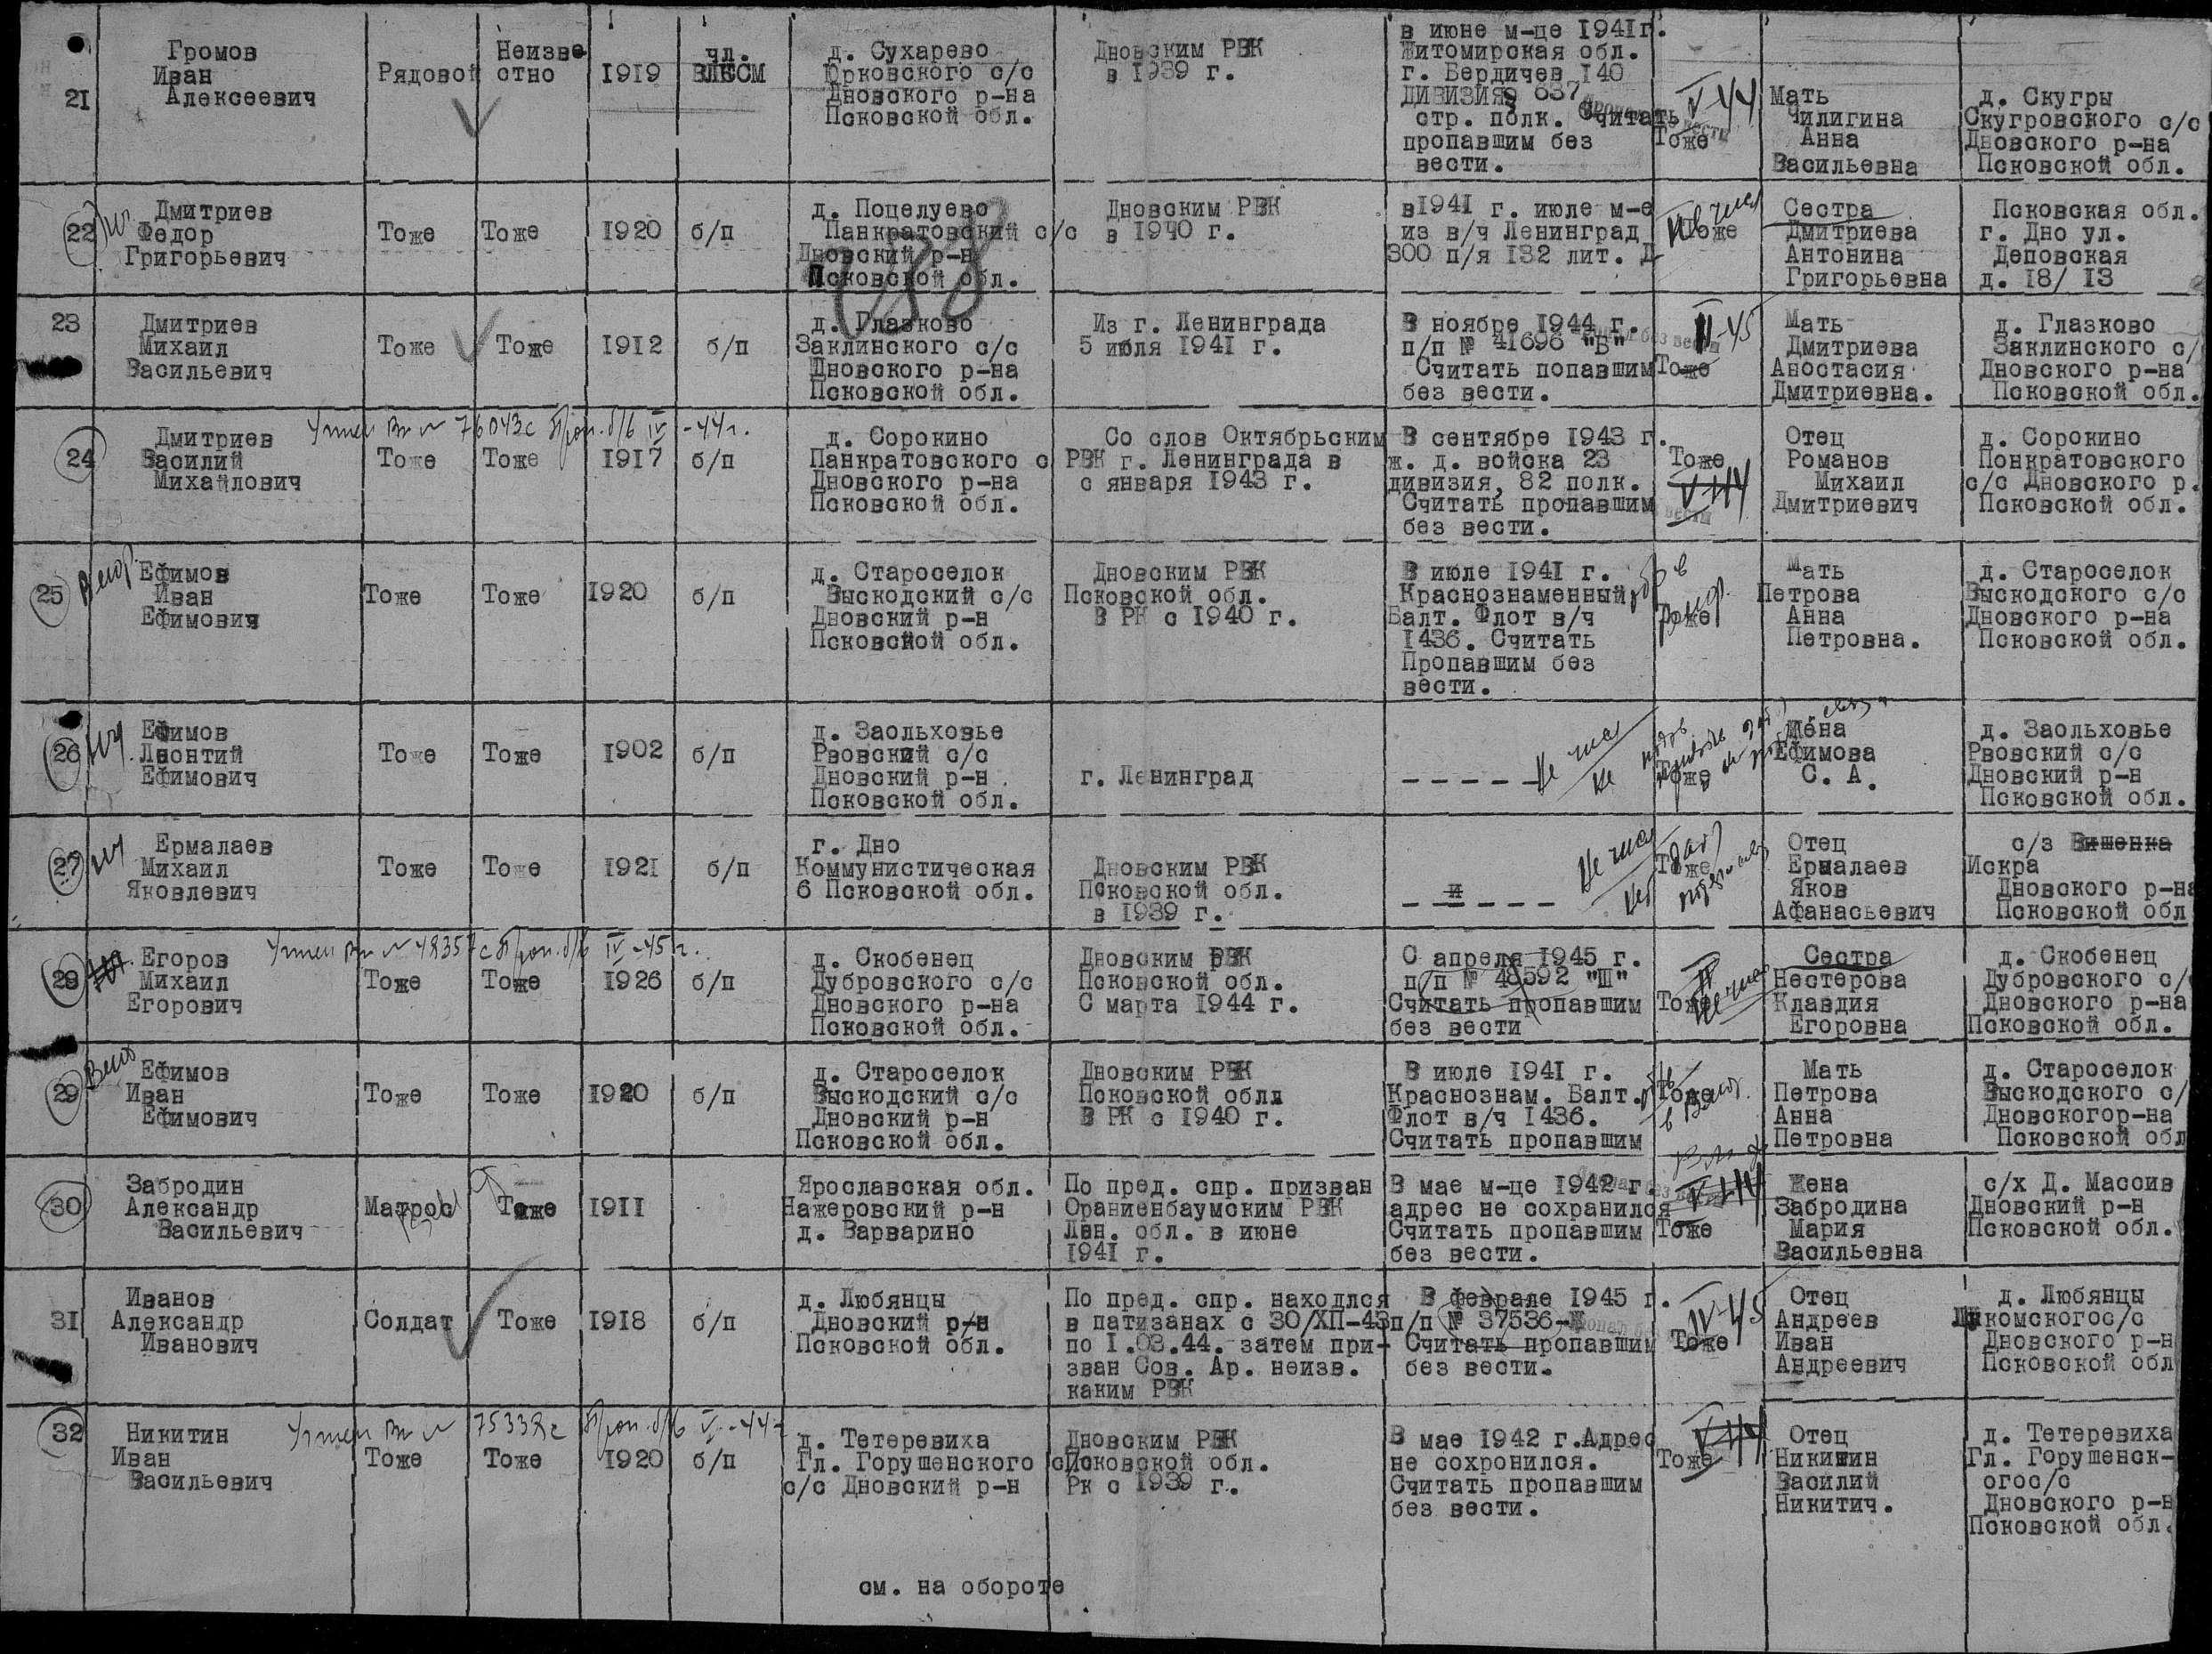 21
Громов
Иван
Алексеевич
Рядовой
Неизве
стно
1919
чл.
ВЛКСМ
д. Сухарево
Юрковского с/с
Дновского р-на
Псковской обл.
Дновским РВК
в 1939 г.
в июне м-це 1941г.
Житомирская обл.
г. Бердичев 140
дивизия 637
стр. полк. Считать
пропавшим без
вести.
V-44
Тоже
Мать
Чилигина
Анна
Васильевна
д. Скугры
Скугровского с/с
Дновского р-на
Псковской обл.
22
Дмитриев
Федор
Григорьевич
Тоже
Тоже
1920
б/п
д. Поцелуево
Панкратовский с/с
Дновский р-н
Псковской обл.
Дновским РВК
в 1940 г.
в1941 г. июле м-е
из в/ч Ленинград
300 п/я 132 лит. Д
Тоже
Сестра
Дмитриева
Антонина
Григорьевна
Псковская обл.
г. Дно ул.
Деповская
д. 18/ 13
23
Дмитриев
Михаил
Васильевич
Тоже
Тоже
1912
б/п
д. Глазково
Заклинского с/с
Дновского р-на
Псковской обл.
Из г. Ленинграда
5 июля 1941 г.
В ноябре 1944 г.
п/п № 41696 "Б"
Считать попавшим
без вести.
II-45
Тоже
Мать
Дмитриева
Аностасия
Дмитриевна.
д. Глазково
Заклинского с/
Дновского р-на
Псковской обл.
24
Учтен Вх № 76043с Проп. б/в IV -44г.
Дмитриев
Василий
Михайлович
Тоже
Тоже
1917
б/п
д. Сорокино
Панкратовского с
Дновского р-на
Псковской обл.
Со слов Октябрьским
РВК г. Ленинграда в
с января 1943 г.
В сентябре 1943 г.
ж. д. войска 23
дивизия, 82 полк.
Считать пропавшим
без вести.
Тоже
Отец
Романов
Михаил
Дмитриевич
д. Сорокино
Понкратовского
с/с Дновского р.
Псковской обл.
25
Ефимов
Иван
Ефимович
Тоже
Тоже
1920
б/п
д. Староселок
Выскодский с/с
Дновский р-н
Псковской обл.
Дновским РВК
Псковской обл.
В РК с 1940 г.
В июле 1941 г.
Краснознаменный
Балт. Флот в/ч
1436. Считать
Пропавшим без
вести.
Тоже
Мать
Петрова
Анна
Петровна.
д. Староселок
Выскодского с/с
Дновского р-на
Псковской обл.
26
Ефимов
Леонтий
Ефимович
Тоже
Тоже
1902
б/п
д. Заольховье
Рвовский с/с
Дновский р-н
Псковской обл.
г. Ленинград
- - - - -
Тоже
Жена
Ефимова
С. А.
д. Заольховье
Рвовский с/с
Дновский р-н
Псковской обл.
27
Ермалаев
Михаил
Яковлевич
Тоже
Тоже
1921
б/п
г. Дно
Коммунистическая
6 Псковской обл.
Дновским РВК
Псковской обл.
в 1939 г.
- - и - - -
Тоже
Отец
Ермалаев
Яков
Афанасьевич
с/з Вишенка
Искра
Дновского р-на
Псковской обл
28
Учтен Вх № 48357с Проп. б/в IV -45 г.
Егоров
Михаил
Егорович
Тоже
Тоже
1926
б/п
д. Скобенец
Дубровского с/с
Дновского р-на
Псковской обл.
Дновским РВК
Псковской обл.
С марта 1944 г.
С апреля 1945 г.
п/п № 48592 "Ш"
Считать пропавшим
без вести
Тоже
Сестра
Нестерова
Клавдия
Егоровна
д. Скобенец
Дубровского с/
Дновского р-на
Псковской обл.
29
Ефимов
Иван
Ефимович
Тоже
Тоже
1920
б/п
д. Староселок
Выскодский с/с
Дновский р-н
Псковской обл.
Дновским РВК
Псковской облл
В РК с 1940 г.
В июле 1941 г.
Краснознам. Балт.
Флот в/ч 1436.
Считать пропавшим
Тоже
Мать
Петрова
Анна
Петровна
д. Староселок
Выскодского с/
Дновскогор-на
Псковской обл
30
Забродин
Александр
Васильевич
Матрос
Тоже
1911
Ярославская обл.
Нажеровский р-н
д. Варварино
По пред. спр. призван
Ораниенбаумским РВК
Лен. обл. в июне
1941 г.
В мае м-це 1942 г.
адрес не сохранился
Считать пропавшим
без вести.
Тоже
Жена
Забродина
Мария
Васильевна
с/х Д. Массив
Дновский р-н
Псковской обл.
31
Иванов
Александр
Иванович
Солдат
Тоже
1918
б/п
д. Любянцы
Дновский р-н
Псковской обл.
По пред. спр. находлся
в патизанах с 30/ХП-43
по 1.03.44. затем при-
зван Сов. Ар. неизв.
каким РВК
В феврале 1945 г.
п/п № 37536-
Считать пропавшим
без вести.
IV-45
Тоже
Отец
Андреев
Иван
Андреевич
д. Любянцы
комскогос/с
Дновского р-н
Псковской обл
32
Учтен Вх № 75338с Проп. б/в V -44г
Никитин
Иван
Васильевич
Тоже
Тоже
1920
б/п
д. Тетеревиха
Гл. Горушенского
с/с Дновский р-н
Дновским РВК
Псковской обл.
Рк с 1939 г.
В мае 1942 г.Адрес
не сохронился.
Считать пропавшим
без вести.
Тоже
Отец
Никитин
Василий
Никитич.
д. Тетеревиха
Гл. Горушенск-
огос/с
Дновского р-н
Псковской обл.
см. на обороте